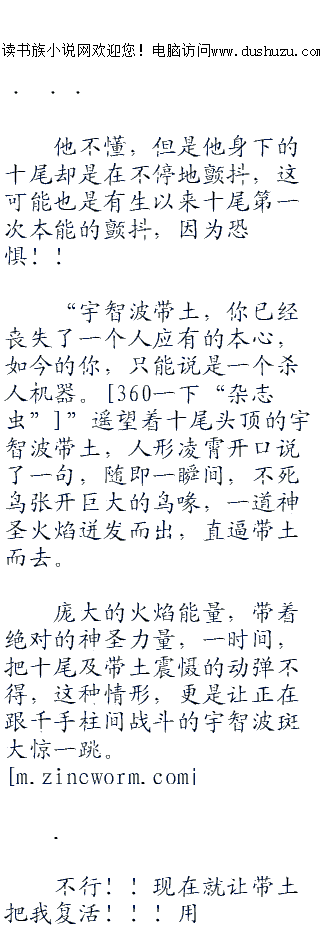 读书族小说网欢迎您！电脑访问www.dushuzu.com
. . .
他不懂，但是他身下的
十尾却是在不停地颤抖，这
可能也是有生以来十尾第一
次本能的颤抖，因为恐
惧！！
“宇智波带土，你已经
丧失了一个人应有的本心，
如今的你，只能说是一个杀
人机器。[360一下“杂志
虫”]”遥望着十尾头顶的宇
智波带土，人形凌霄开口说
了一句，随即一瞬间，不死
鸟张开巨大的鸟喙，一道神
圣火焰迸发而出，直逼带土
而去。
庞大的火焰能量，带着
绝对的神圣力量，一时间，
把十尾及带土震慑的动弹不
得，这种情形，更是让正在
跟千手柱间战斗的宇智波斑
大惊一跳。
[m.zincworm.com|
.
不行！！现在就让带土
把我复活！！！用